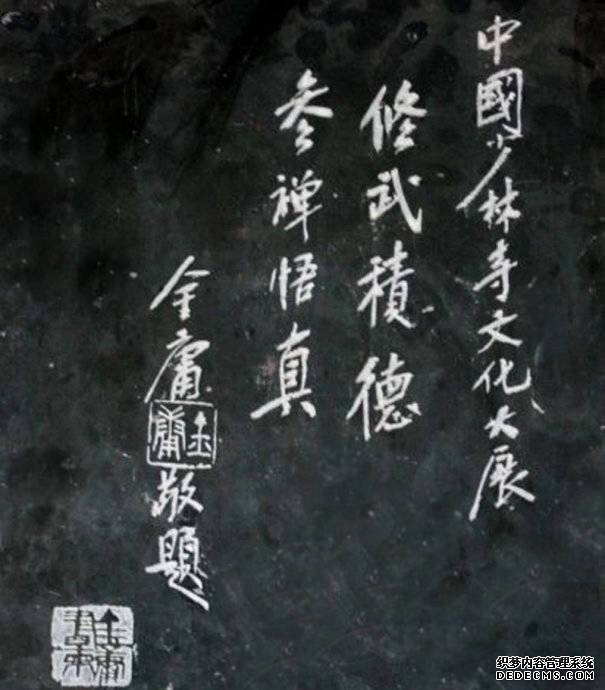 中國少林寺文化大展
修武積德
参禅悟真
金庸
金庸
敬題
金庸
织梦内容管理系统
DEDECMS.COM